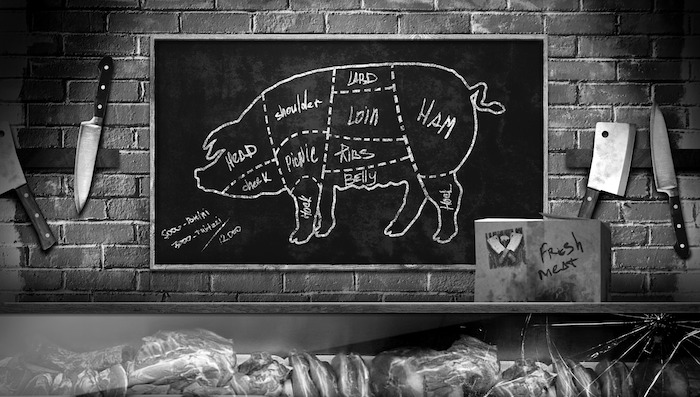 LARD
shoulder
Loin
HAM
HEAD
Picnic
RIBS
cheek
BELLY
Hook
Hook
12.000
Fresh
meat